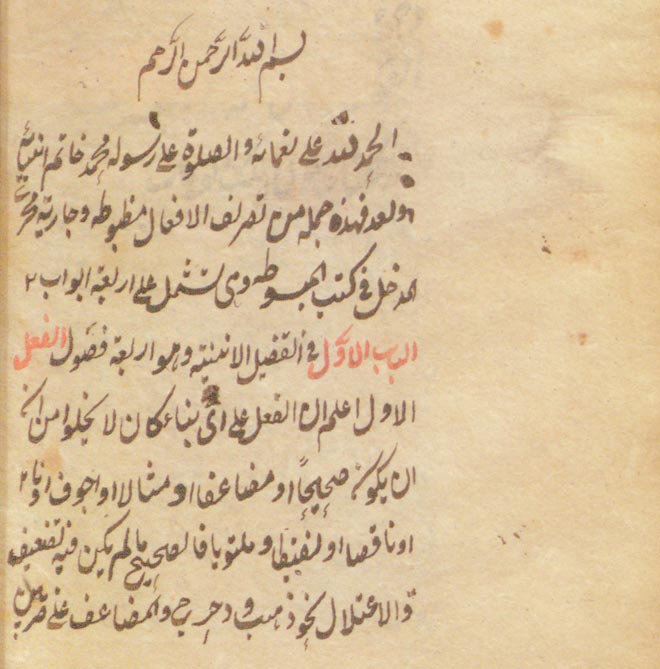 بسم الله الرحمن الرحيم
الحمد لله على نعمائه والصلوة على رسوله محمد خاتم انبيائه
وبعد فهذه جملة من تصريف الافعال مظبوطه وجارية مجرى
المدخل فى كتب المبسوطه وهى تشتمل على اربعة ابواب
الباب الاوّل فى وهو اربعة فصول الفصل
الاول اعلم ان الفعل على اىّ بناء كان لا يخلوا من
ان يكون صحيحًا او مضاعفا او مثالا او اجوف
او ناقصا او لفيفا وملتويا فالصحيح ما لم يكن فيه تضعيف
والاعتلال نحو ذهب ودحرج والمضاعف على ضربين